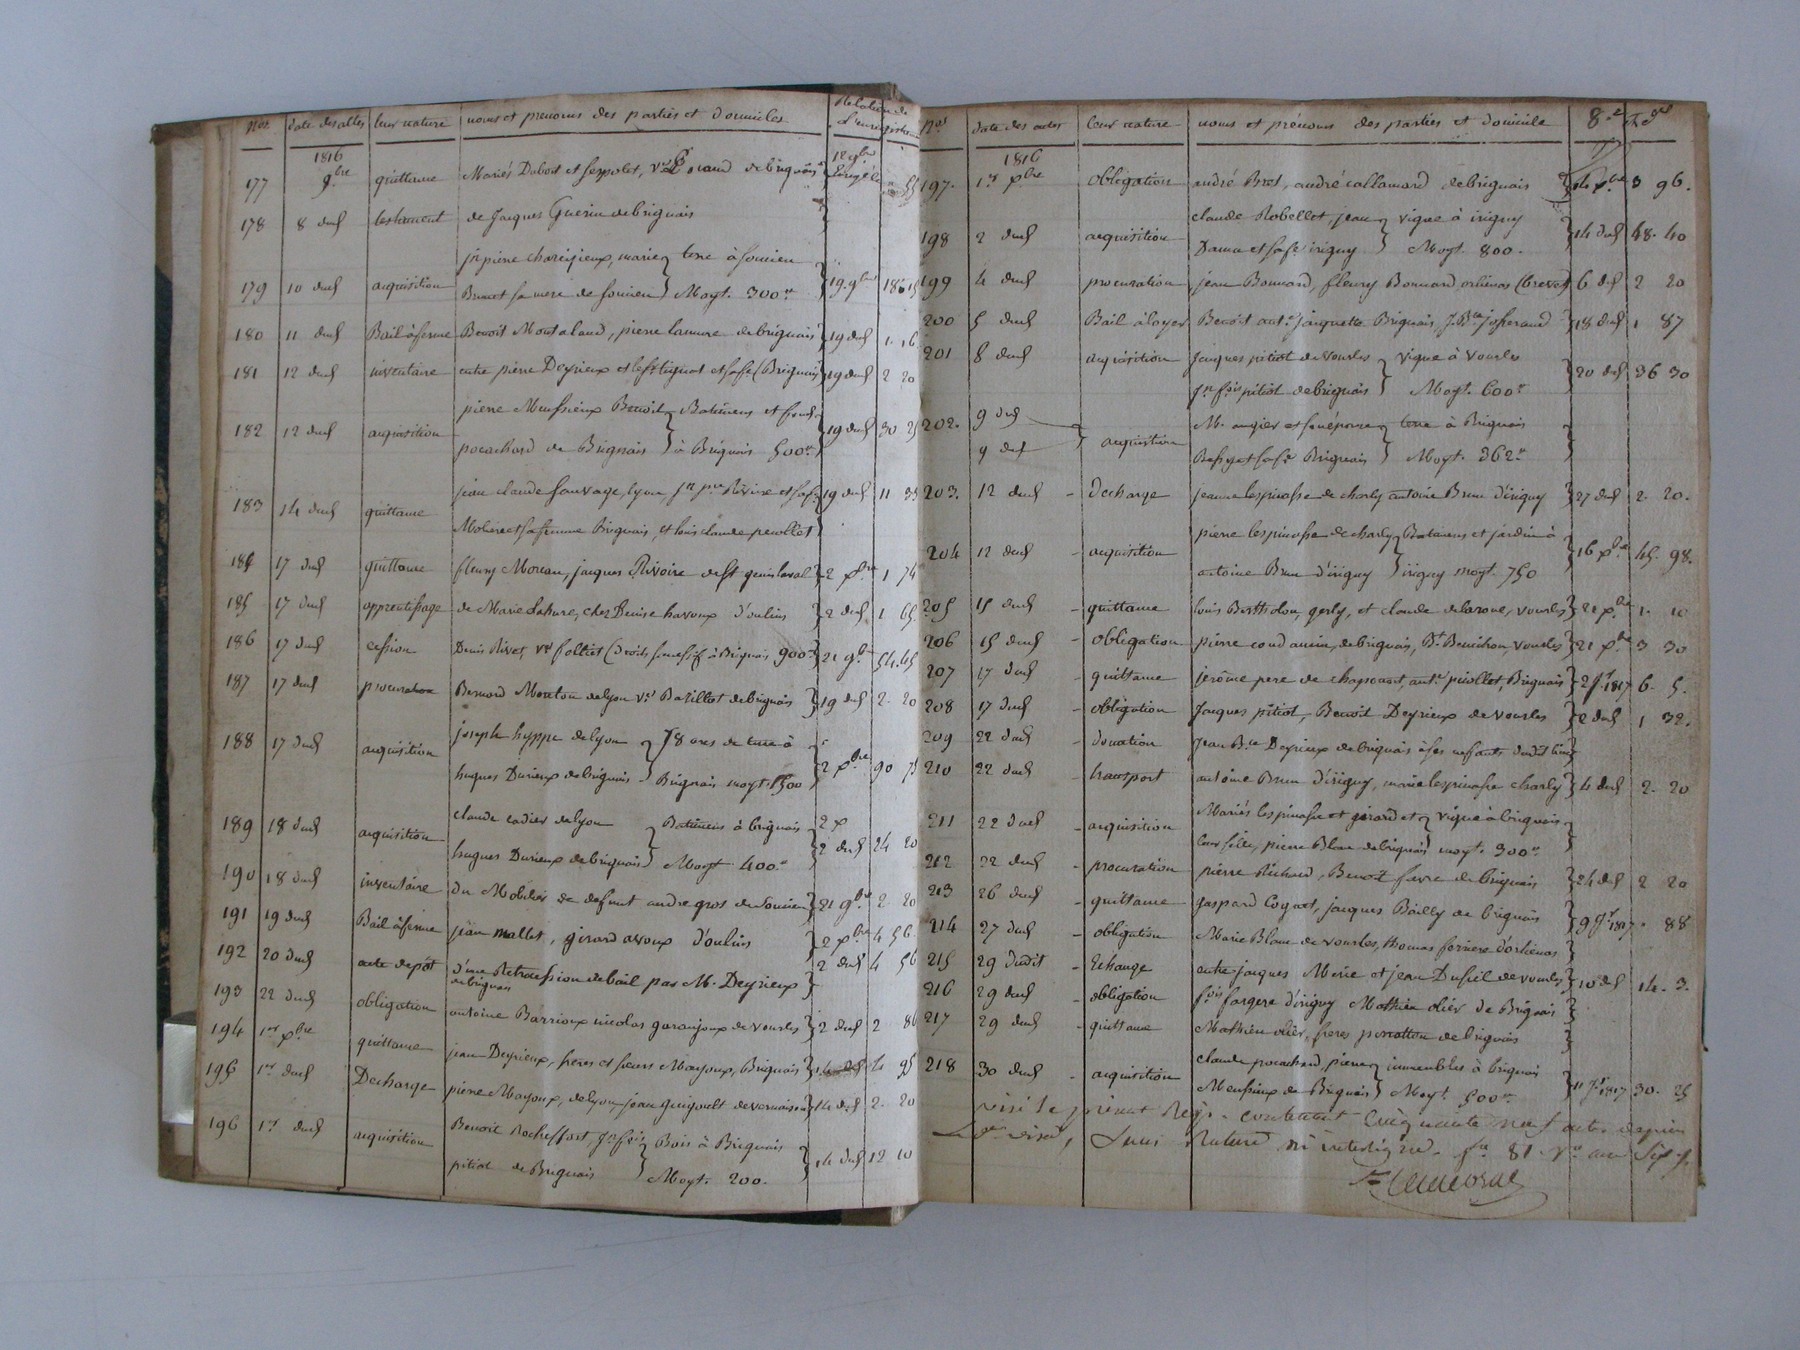 Nos date des actes leur nature noms et prenoms des parties et domiciles Relation de L'enregistrement
1816
177 9bre quittance Mariés Dubost et
178 8 dud testament de Jacques Guerin de brignais
jn pierre terre à soucieu
179 10 dud acquisition de soucieu Moyt. 300 19. 9bre 18
180 11 dud Bail à ferme Benoit Montaland, pierre de brignais 19 dud 1. 16
181 12 dud inventaire entre pierre Deyrieux et (Brignais) 19 dud 2 20
pierre Meussieux Benoit Batimens et fonds
182 12 dud acquisition pocachard de Brignais à Brignais 500 19 dud 30 25
jean claude sauvage, lyon, 19 dud 11 33
183 14 dud quittance et sa femme Brignais, et louis claude peuollet
184 17 dud quittance fleury Moreau, jacques Rivoire de st genis laval 2 xbre 1 74
185 17 dud apprentissage de Marie chez Denise d'oulins 2 dud 1 65
186 17 dud cession Denis Rivet, à Brignais 900 21 9bre 54. 45
187 17 dud procuration Bernard Mouton de lyon Bazillot de brignais 19 dud 2. 20
joseph hyppe de lyon 78 ares de terre à
188 17 dud acquisition hugues Durieux de brignais Brignais moyt. 1500 2 xbre 90 75
claude cadier de lyon Batimens à brignais 2 x
189 18 dud acquisition hugues Durieux de brignais Moyt 400 2 dud 24 20
190 18 dud inventaire du Mobilier de defunt andre gros de Soucieu 21 9bre 2. 20
191 19 dud Bail à ferme jean mallet, girard d'oulins 2 xbre 4 56
192 20 dud acte depôt d'une Retrocession de bail par M. Deyrieux 2 dud 4 56
de brignais
193 22 dud obligation antoine Barrioux nicolas de vourles 2 dud 2 86
194 1er xbre quittance jean Deyrieux, freres et seurs Mayoux, Brignais 14 dud 4 95
195 1er dud Decharge pierre Mayoux, de lyon, jean guigoult de vernaison 14 dud 2. 20
Benoit Rocheffort, Jn fois Bois à Brignais
196 1er dud acquisition pitiot de Brignais Moyt. 200. 14 dud 12 10
nos date des actes leur nature noms et prénoms des parties et domicile
1816
197. 1er xbre obligation andré Brot, andré callamard de brignais 14 xbre 3 96.
claude Robellet, jean vigne à irigny
198 2 dud acquisition et sa fe irigny Moyt. 800. 14 dud 48. 40
199 4 dud procuration jean Bonnard, fleury Bonnard orlienas (brevet) 6 dud 2 20
200 5 dud Bail à loyer Benoit ante jaquette Brignais, J. Bte josserand 18 dud 1 87
201 8 dud acquisition jacques pitiot de vourles vigne à vourles
Jn fois pitiot de brignais Moyt. 600 20 dud 36 30
202. 9 dud M. augier et son épouse terre à Brignais
9 dud acquisition et sa fe Brignais Moyt. 362
203. 12 dud - decharge jeanne lespinasse de charly antoine Brun d'irigny 27 dud 2. 20.
pierre lespinasse de charly Batimens et jardin à
204 12 dud - acquisition antoine Brun d'irigny irigny moyt. 750 16 xbre 45. 98.
205 15 dud - quittance louis Bertholon, et claude delaroue, vourles 21 xbre 1. 10
206 15 dud - obligation pierre de brignais, vourles 21 xbre 3 30
207 17 dud - quittance jerôme pere de chaponost, ante peuollet, Brignais 2 jr 1817 6. 5.
208 17 dud - obligation Jacques pitiot, Benoit Deyrieux de vourles 2 dud 1 32.
209 22 dud - donation Jean Bte Deyrieux de brignais à ses enffants dudit lieu
210 22 dud - transport antoine Brun d'irigny, marie lespinasse charly 4 dud 2. 20
Mariés lespinasse et girard et vigne à brignais
211 22 dud - acquisition leur fille, pierre Blanc de brignais moyt. 300
212 22 dud - procuration pierre Richard, Benoit favre de brignais 24 dud 2 20
213 26 dud - quittance gaspard Cognet, jacques Bailly de brignais 9 jr 1817 . 88
214 27 dud - obligation Marie Blanc de vourles, thomas ferriere d'orlienas
215 29 dudit - Echange entre jacques Merie et jean Dufeil de vourles 10 dud 14. 3.
216 29 dud - obligation fois fargere d'irigny Mathieu olier de Brignais
217 29 dud - quittance Mathieu olier, freres de brignais
claude pocachard, pierre immeubles à brignais
218 30 dud - acquisition Meussieux de Brignais Moyt 500 11 jr 1817 30. 25
visé le présent Rep. contenant Cinquante neuf actes depuis
Le der visa, sans Rature ni interligne. 81